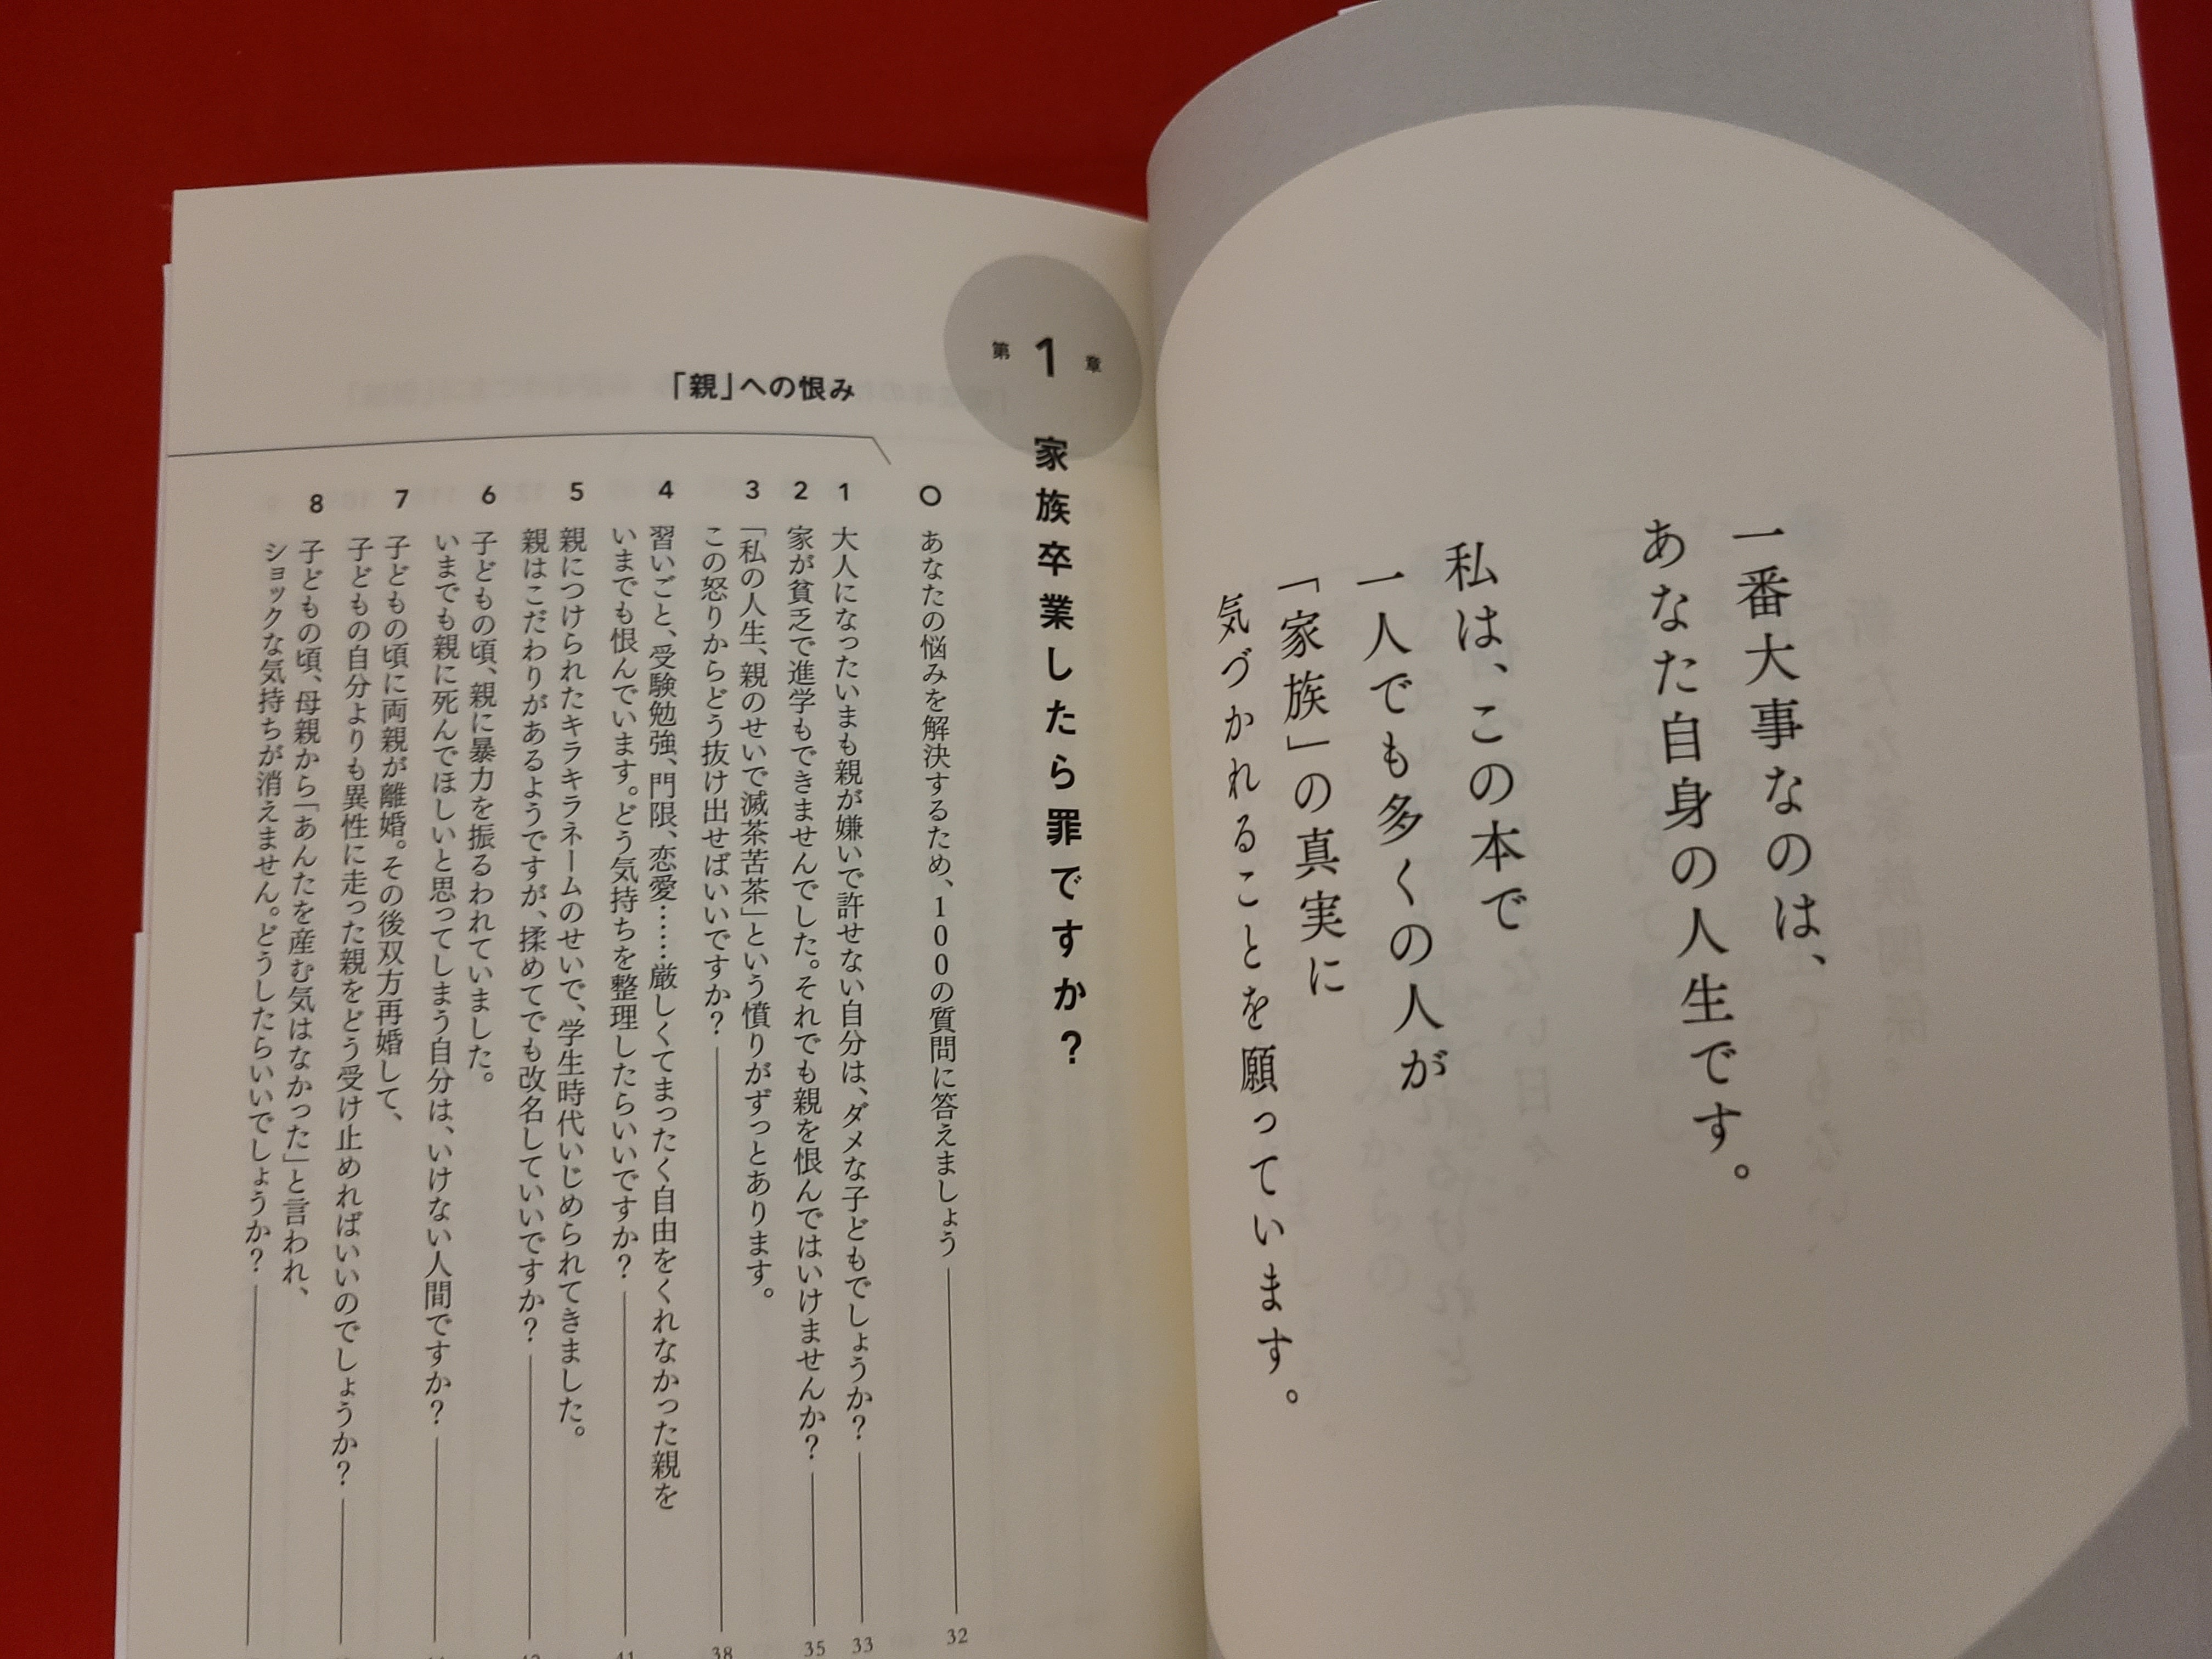 一番大事なのは、
あなた自身の人生です。
私は、この本で
一人でも多くの人が
「家族」の真実に
気づかれることを願っています。
第1章
家族卒業したら罪ですか?
○ あなたの悩みを解決するため、100の質問に答えましょう 32
「親」への恨み
1 大人になったいまも親が嫌いで許せない自分は、ダメな子どもでしょうか? 33
2 家が貧乏で進学もできませんでした。それでも親を恨んではいけませんか? 35
3 「私の人生、親のせいで滅茶苦茶」という憤りがずっとあります。
この怒りからどう抜け出せばいいですか? 38
4 習いごと、受験勉強、門限、恋愛……厳しくてまったく自由をくれなかった親を
いまでも恨んでいます。どう気持ちを整理したらいいですか? 41
5 親につけられたキラキラネームのせいで、学生時代いじめられてきました。
親はこだわりがあるようですが、揉めてでも改名していいですか?
6 子どもの頃、親に暴力を振るわれていました。
いまでも親に死んでほしいと思ってしまう自分は、いけない人間ですか?
7 子どもの頃に両親が離婚。その後双方再婚して、
子どもの自分よりも異性に走った親をどう受け止めればいいのでしょうか?
8 子どもの頃、母親から「あんたを産む気はなかった」と言われ、
ショックな気持ちが消えません。どうしたらいいでしょうか?